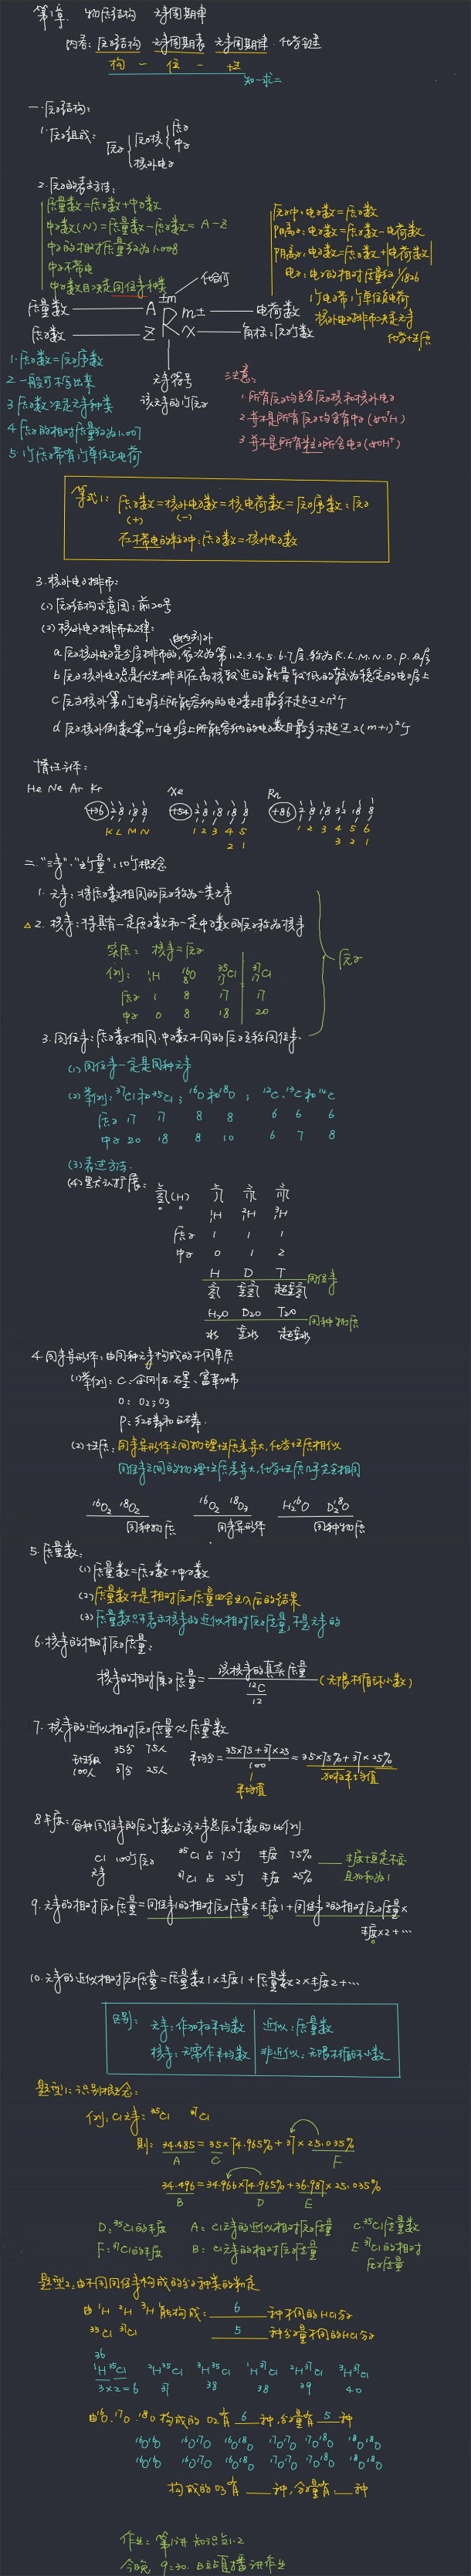 第1章. 物质结构 元素周期律
内容: 原子结构 元素周期表 元素周期律. 化学键
构 — 位 — 性
知一求二
一. 原子结构:
1. 原子组成: 原子 原子核 质子
中子
核外电子
2. 原子的表示方法:
质量数=质子数+中子数
中子数(N)=质量数-质子数= A-Z
中子的相对质量约为1.008
中子不带电
中子数目决定同位素种类
原子中: 电子数=质子数
阳离子: 电子数=质子数-电荷数
阴离子: 电子数=质子数+|电荷数|
电子: 电子的相对质量约1/1836
1个电子带1个单位负电荷
核外电子排布决定元素
化学性质
化合价
质量数 A ±m m± 电荷数
R
质子数 Z x 角标: 原子个数
元素符号
该元素的1个原子
1. 质子数=原子序数
2. 一般可不写出来
3. 质子数决定元素种类
4. 质子的相对质量约为1.007
5. 1个质子带有1个单位正电荷
注意:
1. 所有原子均含原子核和核外电子
2. 并不是所有原子均含有中子 (如¹H)
3. 并不是所有粒子所含电子 (如H⁺)
等式1: 质子数=核外电子数=核电荷数=原子序数: 原子
(+) (-)
在不带电的粒子中: 质子数=核外电子数
3. 核外电子排布:
(1) 原子结构示意图: 前20号
(2) 核外电子排布的规律:
由内到外
a. 原子核外电子是分层排布的, 依次为第1.2.3.4.5.6.7层, 称为K.L.M.N.O.P.Q层
b. 原子核外电子总是优先排列在离核较近的能量较低的较为稳定的电子层上
c. 原子核外第n个电子层上所能容纳的电子数目最多不超过2n²个
d. 原子核外倒数第m个电子层上所能容纳的电子数目最多不超过2(m+1)²个
惰性气体:
He Ne Ar Kr Xe Rn
+36 2 8 18 8 +54 2 8 18 18 8 +86 2 8 18 32 18 8
K L M N 1 2 3 4 5 1 2 3 4 5 6
2 1 3 2 1
二. "三素". "五个量": 10个概念
1. 元素: 将质子数相同的原子称为一类元素
△ 2. 核素: 将具有一定质子数和一定中子数的原子称为核素
实质: 核素=原子
例: ¹₁H ¹⁶₈O ³⁵₁₇Cl ³⁷₁₇Cl
质子 1 8 17 17
中子 0 8 18 20
原子
3. 同位素: 质子数相同. 中子数不同的原子互称同位素.
(1) 同位素一定是同种元素
(2) 举例: ³⁷Cl和³⁵Cl; ¹⁶O和¹⁸O; ¹²C. ¹³C和¹⁴C
质子 17 17 8 8 6 6 6
中子 20 18 8 10 6 7 8
(3) 表述方法.
(4) 默认扩展: 氢(H) 氕 氘 氚
¹H ²H ³H
质子 1 1 1
中子 0 1 2
H D T 同位素
氢 重氢 超重氢
H₂O D₂O T₂O 同种物质
水 重水 超重水
4. 同素异形体: 由同种元素构成的不同单质
(1) 举例: C: 金刚石. 石墨. 富勒烯
O: O₂ O₃
P: 红磷和白磷.
(2) 性质: 同素异形体之间物理性质差异大, 化学性质相似
同位素之间的物理性质差异大, 化学性质几乎完全相同
¹⁶O₂ ¹⁸O₂ ¹⁶O₂ ¹⁸O₃ H₂¹⁶O D₂¹⁸O
同种物质 同素异形体 同种物质
5. 质量数:
(1) 质量数=质子数+中子数
(2) 质量数不是相对原子质量四舍五入后的结果
(3) 质量数只表示核素的近似相对原子质量, 不是元素的
6. 核素的相对原子质量:
核素的相对原子质量= 该核素的真实质量 (无限不循环小数)
¹²C
12
7. 核素的近似相对原子质量≈质量数
班级 35分 75人 平均分= 35×75+37×25 = 35×75%+37×25%
100人 37分 25人 100 加权平均值
平均值
8. 丰度: 每种同位素的原子个数占该元素总原子个数的比例.
Cl 100个原子 ³⁵Cl 占 75个 丰度 75% 丰度恒定不变
元素 ³⁷Cl 占 25个 丰度 25% 且加和为1
9. 元素的相对原子质量=同位素1的相对原子质量×丰度1+同位素2的相对原子质量×
丰度×2+…
10. 元素的近似相对原子质量=质量数1×丰度1+质量数2×丰度2+…
区别: 元素: 作加权平均数 近似: 质量数
核素: 无需作平均数 非近似: 无限不循环小数
题型1: 识别概念:
例: Cl元素: ³⁵Cl ³⁷Cl
则: 34.485=35×74.965%+37×25.035%
A C F
34.496=34.966×74.965%+36.987×25.035%
B D E
D: ³⁵Cl的丰度 A: Cl元素的近似相对原子质量 C: ³⁵Cl质量数
F: ³⁷Cl的丰度 B: Cl元素的相对原子质量 E: ³⁷Cl的相对
原子质量
题型2: 由不同同位素构成的分子种类的判定
由 ¹H ²H ³H 能构成: 6 种不同的HCl分子
³⁵Cl ³⁷Cl 5 种分子量不同的HCl分子
36
¹H³⁵Cl ²H³⁵Cl ³H³⁵Cl ¹H³⁷Cl ²H³⁷Cl ³H³⁷Cl
3×2=6 37 38 38 39 40
由¹⁶O. ¹⁷O. ¹⁸O构成的O₂有 6 种, 分子量有 5 种
¹⁶O¹⁶O ¹⁶O¹⁷O ¹⁶O¹⁸O ¹⁷O¹⁷O ¹⁷O¹⁸O ¹⁸O¹⁸O
¹⁶O¹⁶O ¹⁶O¹⁷O ¹⁶O¹⁸O ¹⁷O¹⁷O ¹⁷O¹⁸O ¹⁸O¹⁸O
构成的O₃有 种, 分子量有 种
作业: 第1讲 知识点1.2
今晚 9:30. B站直播讲作业